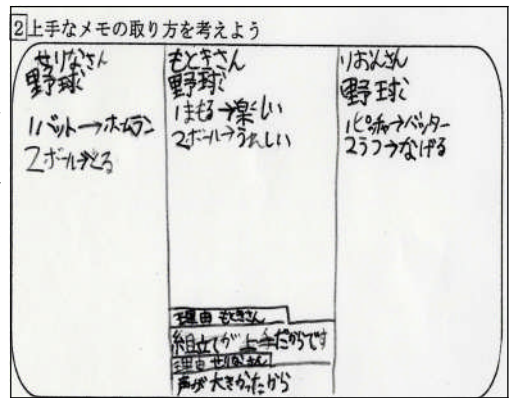 2 上手なメモの取り方を考えよう
せりなさん
野球
1バット→ホームラン
2ボール→とる
もときさん
野球
1まもる→楽しい
2ボール→うれしい
りおんさん
野球
1ピッチャ→バッター
2ラフ→なげる
理由 もときさん
組立てが上手だからです
理由 せりなさん
声が大きかったから